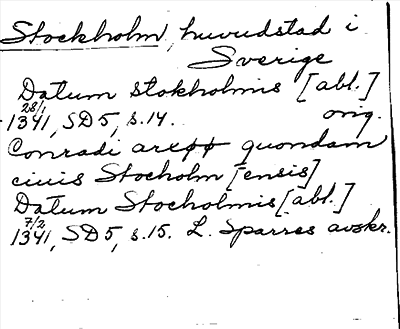 Stockholm, huvudstad i
Sverige
Datum stokholmis [abl.]
28/1
1341, SD5, s.14. orig.
Conradi quondam
ciuis Stocholm [ensis]
Datum Stocholmis [abl.]
7/2
1341, SD5, s.15. L. Sparres avskr.